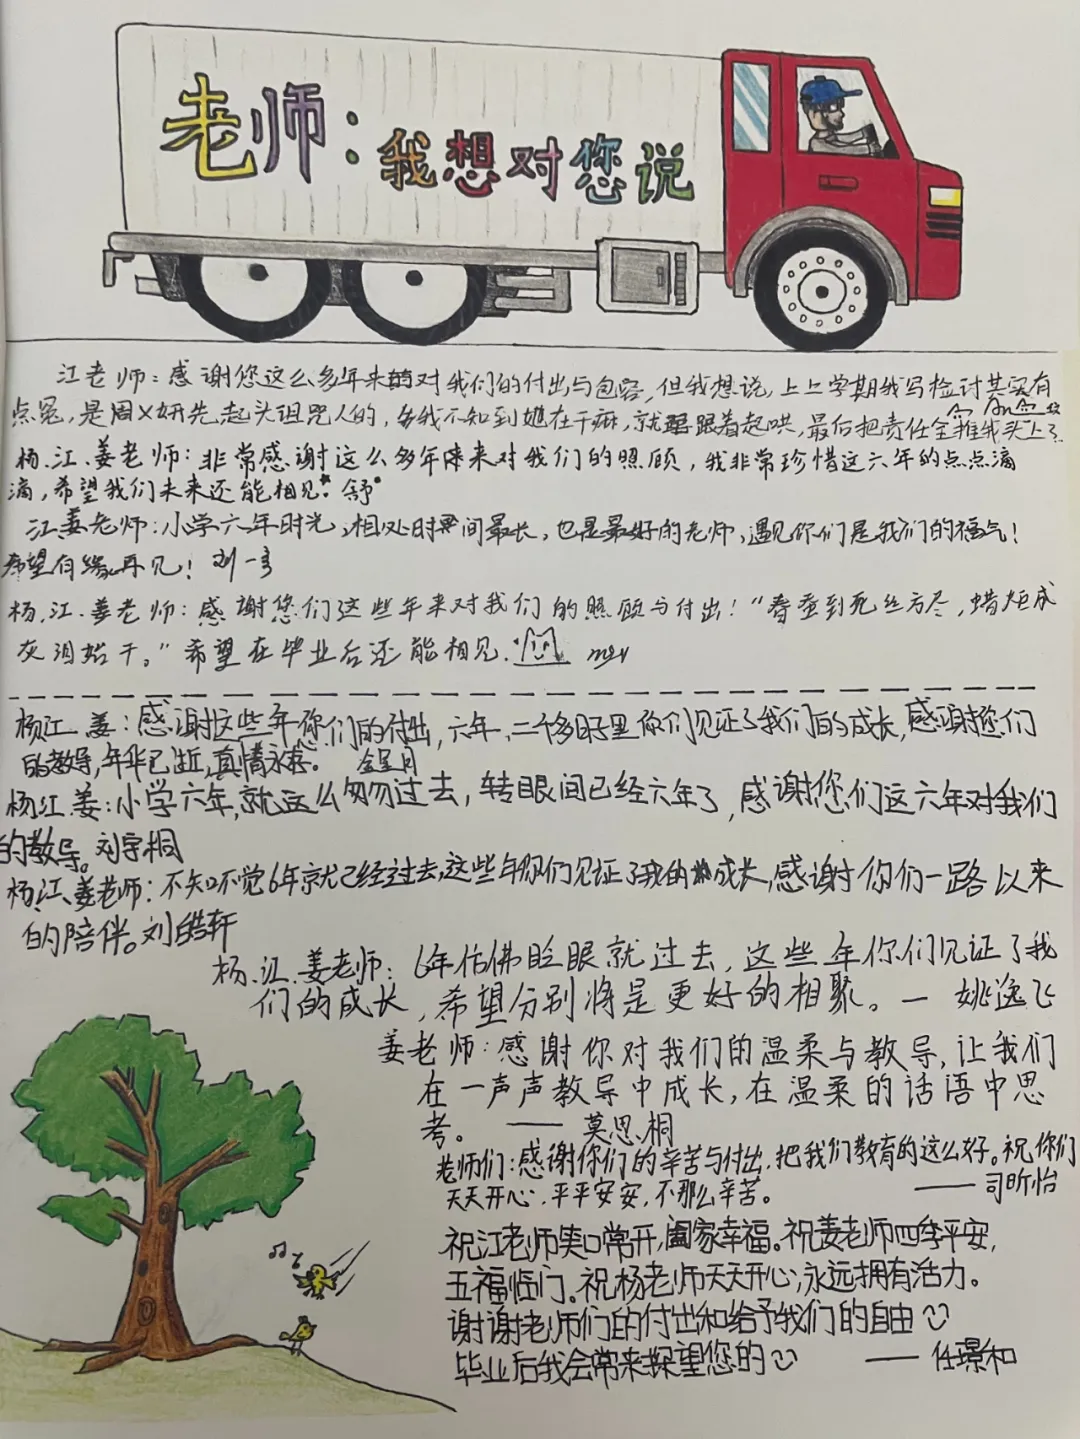 老师：我想对您说
江老师：感谢您这么多年来对我们的付出与包容，但我想说，上上学期我写检讨其实有
点冤，是周×妍先起头诅咒人的，我不知到她在干嘛，就跟着起哄，最后把责任全推我头上了
杨、江、姜老师：非常感谢这么多年来对我们的照顾，我非常珍惜这六年的点点滴
滴，希望我们未来还能相见。舒
江姜老师：小学六年时光，相处时间最长，也是最好的老师，遇见你们是我们的福气！
希望有缘再见！刘一
杨、江、姜老师：感谢您们这些年来对我们的照顾与付出！“春蚕到死丝方尽，蜡炬成
灰泪始干。”希望在毕业后还能相见.
杨江、姜：感谢这些年你们的付出，六年，二千多日里你们见证了我们的成长，感谢您们
的教导，年华已逝，真情永存。
杨江、姜：小学六年，就这么匆匆过去，转眼间已经六年了，感谢您们这六年对我们
的教导。刘宇桐
杨、江、姜老师：不知不觉6年就已经过去，这些年你们见证了我的成长，感谢你们一路以来
的陪伴。刘皓轩
杨、江、姜老师：6年仿佛眨眼就过去，这些年你们见证了我
们的成长，希望分别将是更好的相聚。— 姚逸飞
姜老师：感谢你对我们的温柔与教导，让我们
在一声声教导中成长，在温柔的话语中思
考。——莫思桐
老师们：感谢你们的辛苦与付出，把我们教育的这么好。祝你们
天天开心，平平安安，不那么辛苦。——司昕怡
祝江老师笑口常开，阖家幸福。祝姜老师四季平安，
五福临门。祝杨老师天天开心，永远拥有活力。
谢谢老师们的付出和给予我们的自由
毕业后我会常来探望您的 ——任璟和